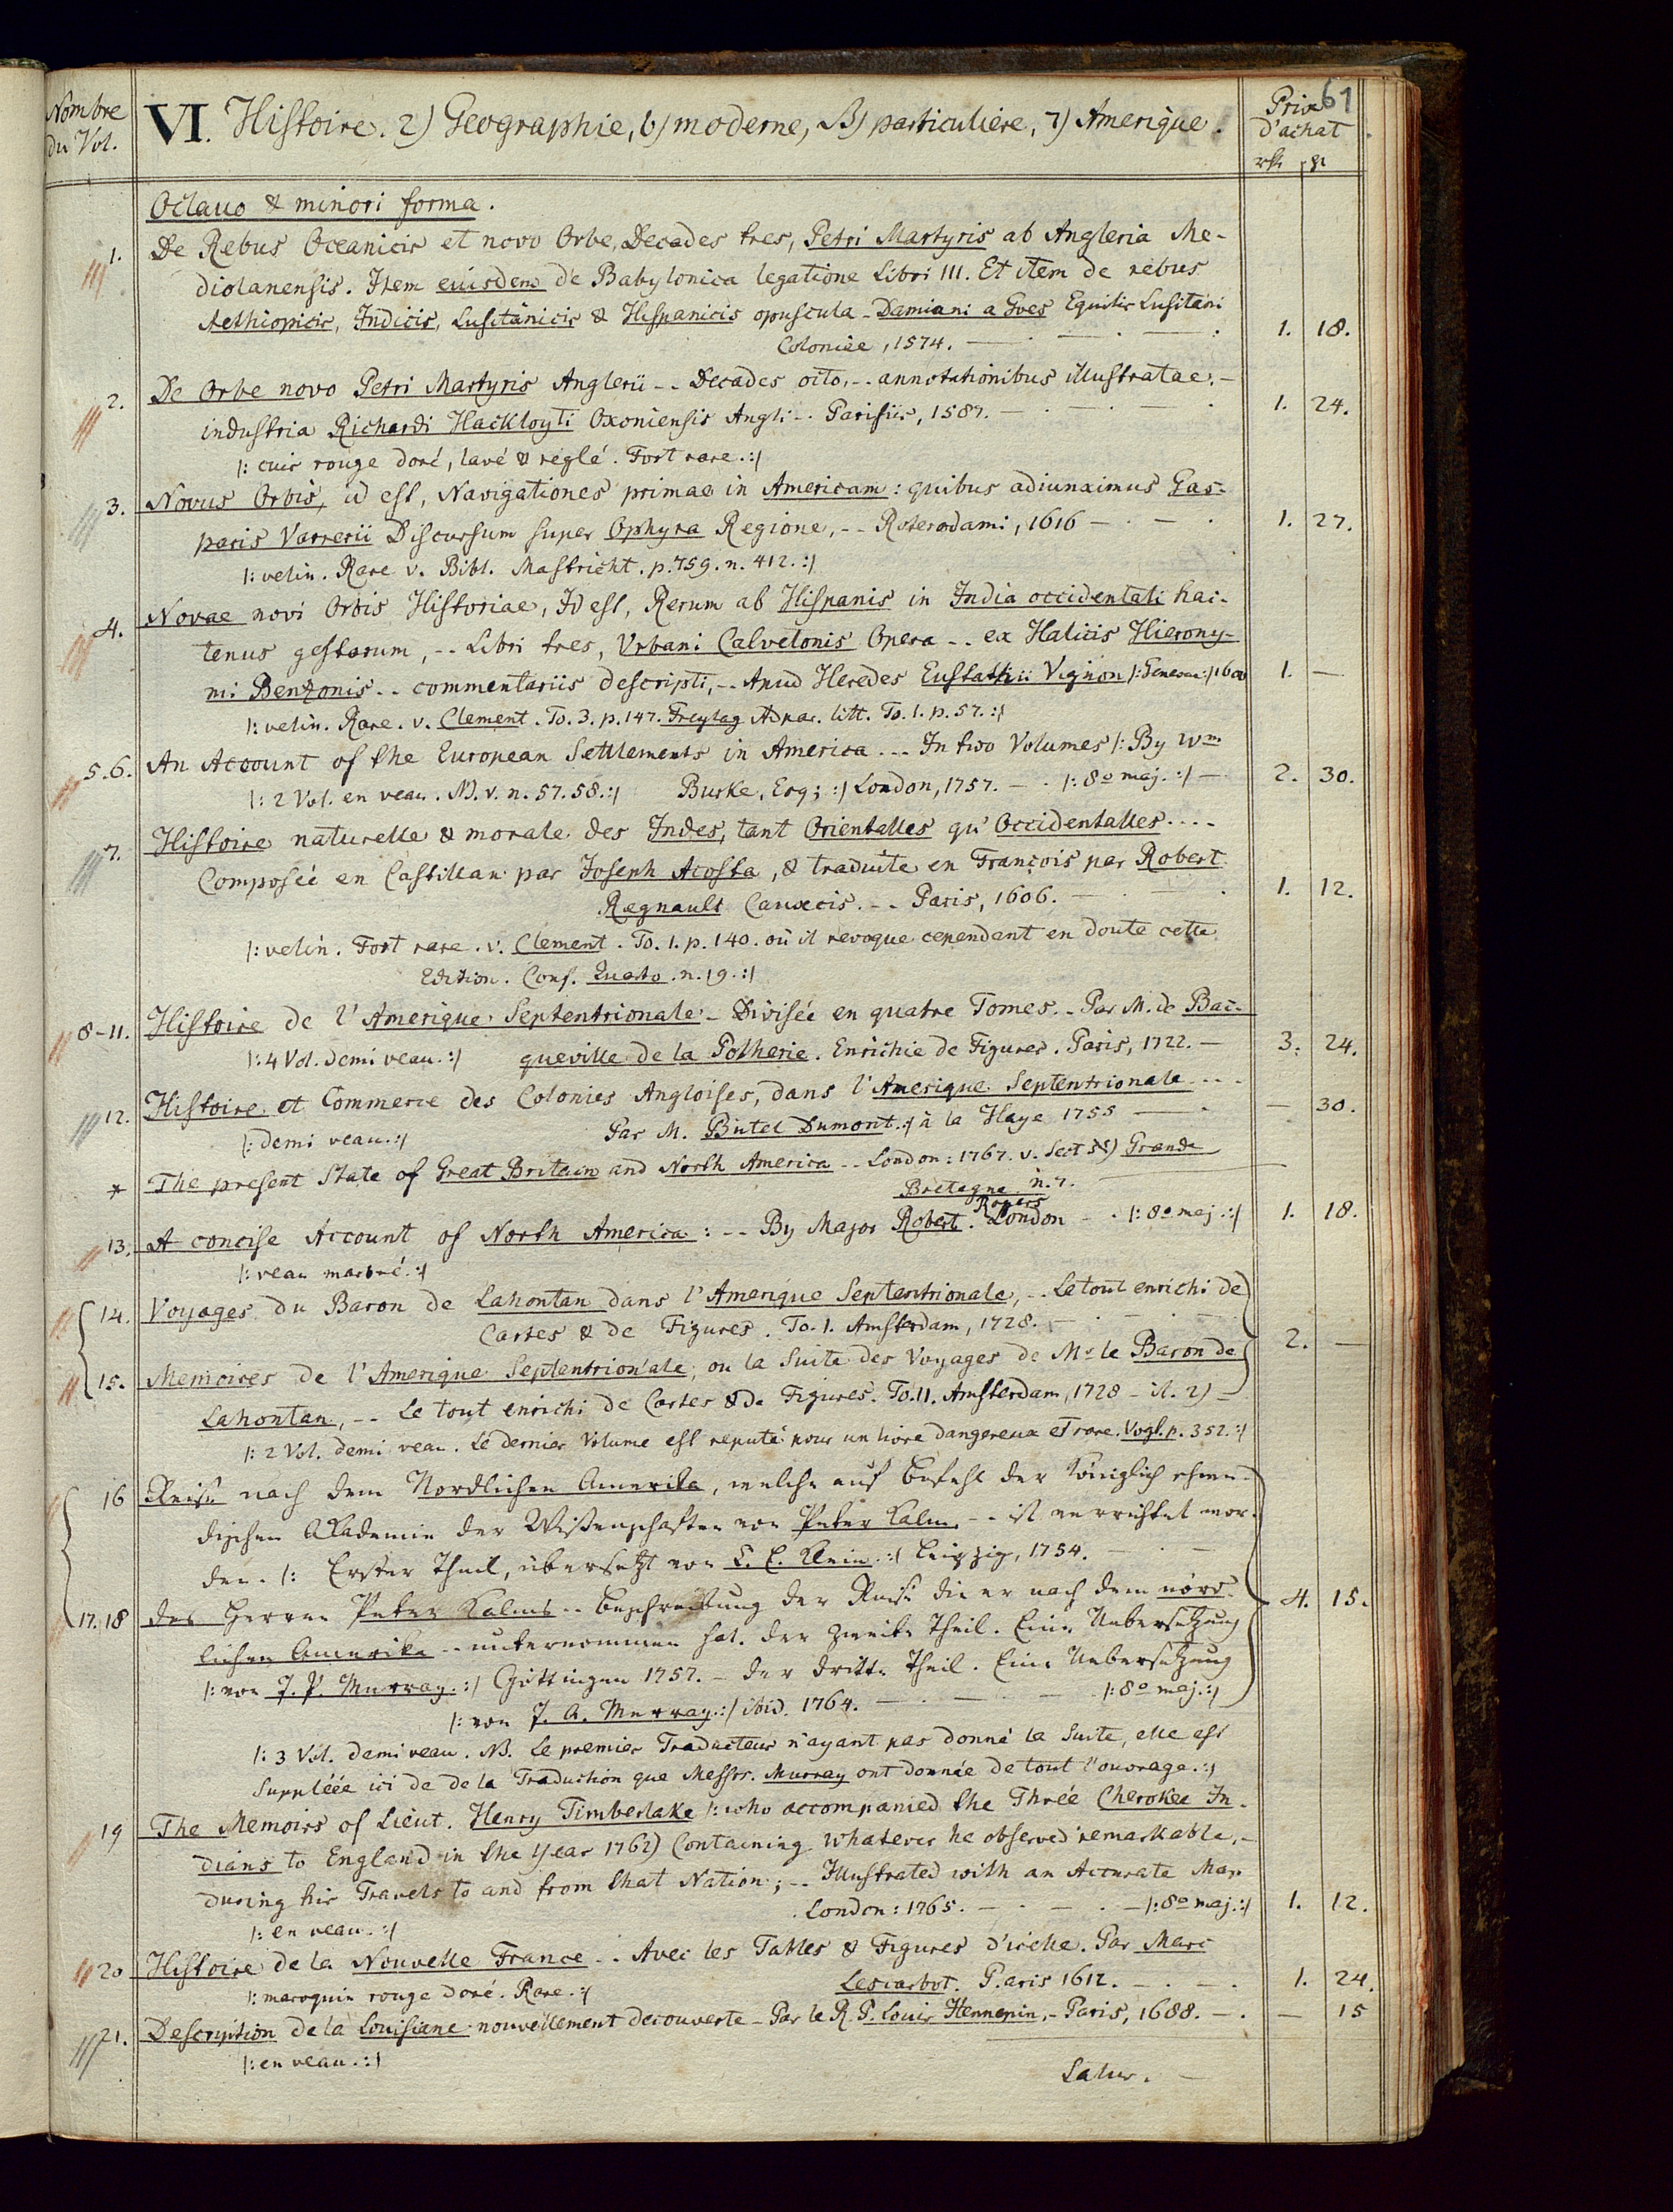 61
Nombre du Vol.
VI. Histoire. 2) Geographie, b) moderne, β) particuliere, 7) Amerique.
Prix d'achat
Octavo & minori forma.
1. De Rebus Oceanicis et novo Orbe, Decades tres, Petri Martyris ab Angleria Me-
diolanensis. Item eiusdem de Babylonica legatione Libri III. Et item de rebus
Aethiopicis, Indicis, Lusitanicis & Hispanicis opuscula - Damiani a Goes Equitis Lusitani
Coloniae, 1574. 1. 18.
2. De Orbe novo Petri Martyris Anglerii -- Decades octo, -- annotationibus illustratae, -
industria Richardi Hackluyti Oxoniensis Angli -- Parisiis, 1587. 1. 24.
|: cuir rouge doré, lavé & reglé. Fort rare. :|
3. Novus Orbis, id est, Navigationes primae in Americam: quibus adiunximus Gas-
paris Varrerii Discursum super Ophyra Regione, -- Roterodami, 1616 1. 27.
|: velin. Rare v. Bibl. Mastricht. p. 759. n. 412. :|
4. Novae novi Orbis Historiae, Id est, Rerum ab Hispanis in India occidentali hac-
tenus gestarum, -- Libri tres, Urbani Calvetonis Opera -- ex Italicis Hierony-
mi Benzonis -- commentariis descripti, -- Apud Heredes Eustathii Vignon |: Genevae :| 1600 1. —
|: velin. Rare. v. Clement. To. 3. p. 147. Freytag Appar. litt. To. 1. p. 57. :|
5.6. An Account of the European Settlements in America --- In two Volumes |: By Wm
|: 2 Vol. en veau. NB. v. n. 57. 58. :| Burke, Esq; :| London, 1757. — |: 8o maj. :| — 2. 30.
7. Histoire naturelle & morale des Indes, tant Orientalles qu'Occidentalles ----
Composée en Castillan par Joseph Acosta, & traduite en François par Robert
Regnault Cauxois. -- Paris, 1606. 1. 12.
|: velin. Fort rare. v. Clement. To. 1. p. 140. où il revoque cependant en doute cette
Edition. Conf. Quarto. n. 19. :|
8-11. Histoire de l'Amerique Septentrionale - Divisée en quatre Tomes. - Par M. de Bac-
|: 4 Vol. demi veau. :| queville de la Potherie. Enrichie de Figures. Paris, 1722. — 3. 24.
12. Histoire et Commerce des Colonies Angloises, dans l'Amerique Septentrionale ---
|: demi veau. :| Par M. Butel Dumont. :| à la Haye 1755 — 30.
* The present State of Great Britain and North America -- London: 1767. v. Sect Grande
Bretagne n. 7. —
13. A concise Account of North America: -- By Major Robert Rogers London — |: 8o maj. :| 1. 18.
|: veau marbré. :|
14. Voyages du Baron de Lahontan dans l'Amerique Septentrionale, -- Le tout enrichi de
Cartes & de Figures. To. 1. Amsterdam, 1728.
15. Memoires de l'Amerique Septentrionale, ou la Suite des Voyages de Mr le Baron de 2. —
Lahontan, -- Le tout enrichi de Cartes & de Figures. To. 11. Amsterdam, 1728
|: 2 Vol. demi veau. Le dernier Volume est reputé pour un livre dangereux et rare. Vogt. p. 352. :|
16 Reise nach dem Nordlichen Amerika, welche auf Befehl der Königlich schwe-
dischen Akademie der Wissenschaften von Peter Kalm -- ist verrichtet wor-
den. |: Erster Theil, übersetzt von C. E. Klein. :| Leipzig, 1754.
17.18 des Herren Peter Kalms -- Beschreibung der Reise die er nach dem nörd- 4. 15.
lichen Amerika -- unternommen hat. Der zweite Theil. Eine Uebersetzung
|: von J. P. Murray. :| Göttingen 1757. — der dritte Theil. Eine Uebersetzung
|: von J. A. Murray. :| ibid. 1764. — |: 8o maj. :|
|: 3 Vol. demi veau. NB. Le premier Traducteur n'ayant pas donné la Suite, elle est
suppléée ici de de la Traduction que Messrs. Murray ont donnée de tout l'ouvrage. :|
19 The Memoirs of Lieut. Henry Timberlake |: who accompanied the Three Cherokee In-
dians to England in the Year 1762) Containing whatever he observed remarkable, -
during his Travels to and from that Nation; -- Illustrated with an Accurate Map
|: en veau. :| London: 1765. — |: 8o maj. :| 1. 12.
20 Histoire de la Nouvelle France -- Avec les Tables & Figures d'icelle. Par Marc
|: maroquin rouge doré. Rare. :| Lescarbot. Paris 1612. 1. 24.
21. Description de la Louisiane nouvellement decouverte - Par le R. P. Louis Hennepin, - Paris, 1688. — 15
|: en veau. :|